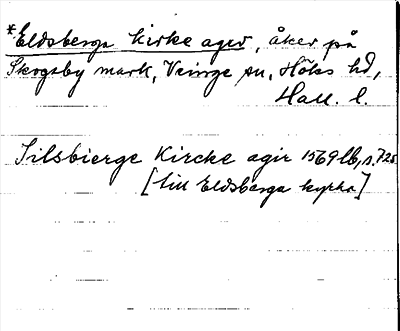 *Eldsberga kirke ager, åker på
Skogaby mark, Veinge sn, Höks hd,
Hall. l.
Jilsbierge Kircke agir 1569 lb, s. 725
[till Eldsberga kyrka]